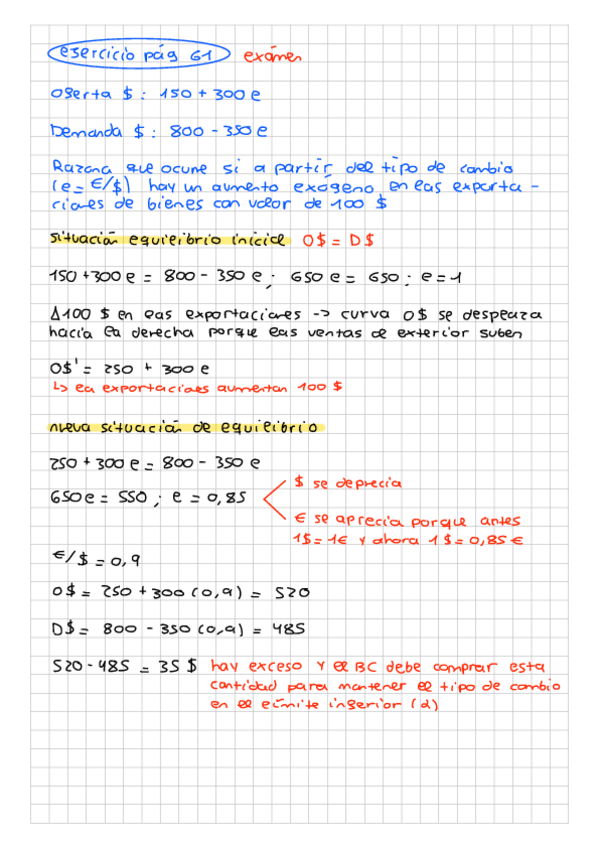 ejercicio pág 61 exámen
Oferta $ : 150 + 300 e
Demanda $ : 800 - 350 e
Razona que ocurre si a partir del tipo de cambio
(e = €/$) hay un aumento exógeno en las exporta -
ciones de bienes con valor de 100 $
situación equilibrio inicial O$ = D$
150 + 300 e = 800 - 350 e ; 650 e = 650 ; e = 1
Δ100 $ en las exportaciones -> curva O$ se desplaza
hacia la derecha porque las ventas de exterior suben
O$' = 250 + 300 e
↳ la exportaciones aumentan 100 $
nueva situación de equilibrio
250 + 300 e = 800 - 350 e
650 e = 550 ; e = 0,85
$ se deprecia
€ se aprecia porque antes
1$ = 1€ y ahora 1$ = 0,85 €
€/$ = 0,9
O$ = 250 + 300 (0,9) = 520
D$ = 800 - 350 (0,9) = 485
520 - 485 = 35 $ hay exceso y el BC debe comprar esta
cantidad para mantener el tipo de cambio
en el límite inferior (d)